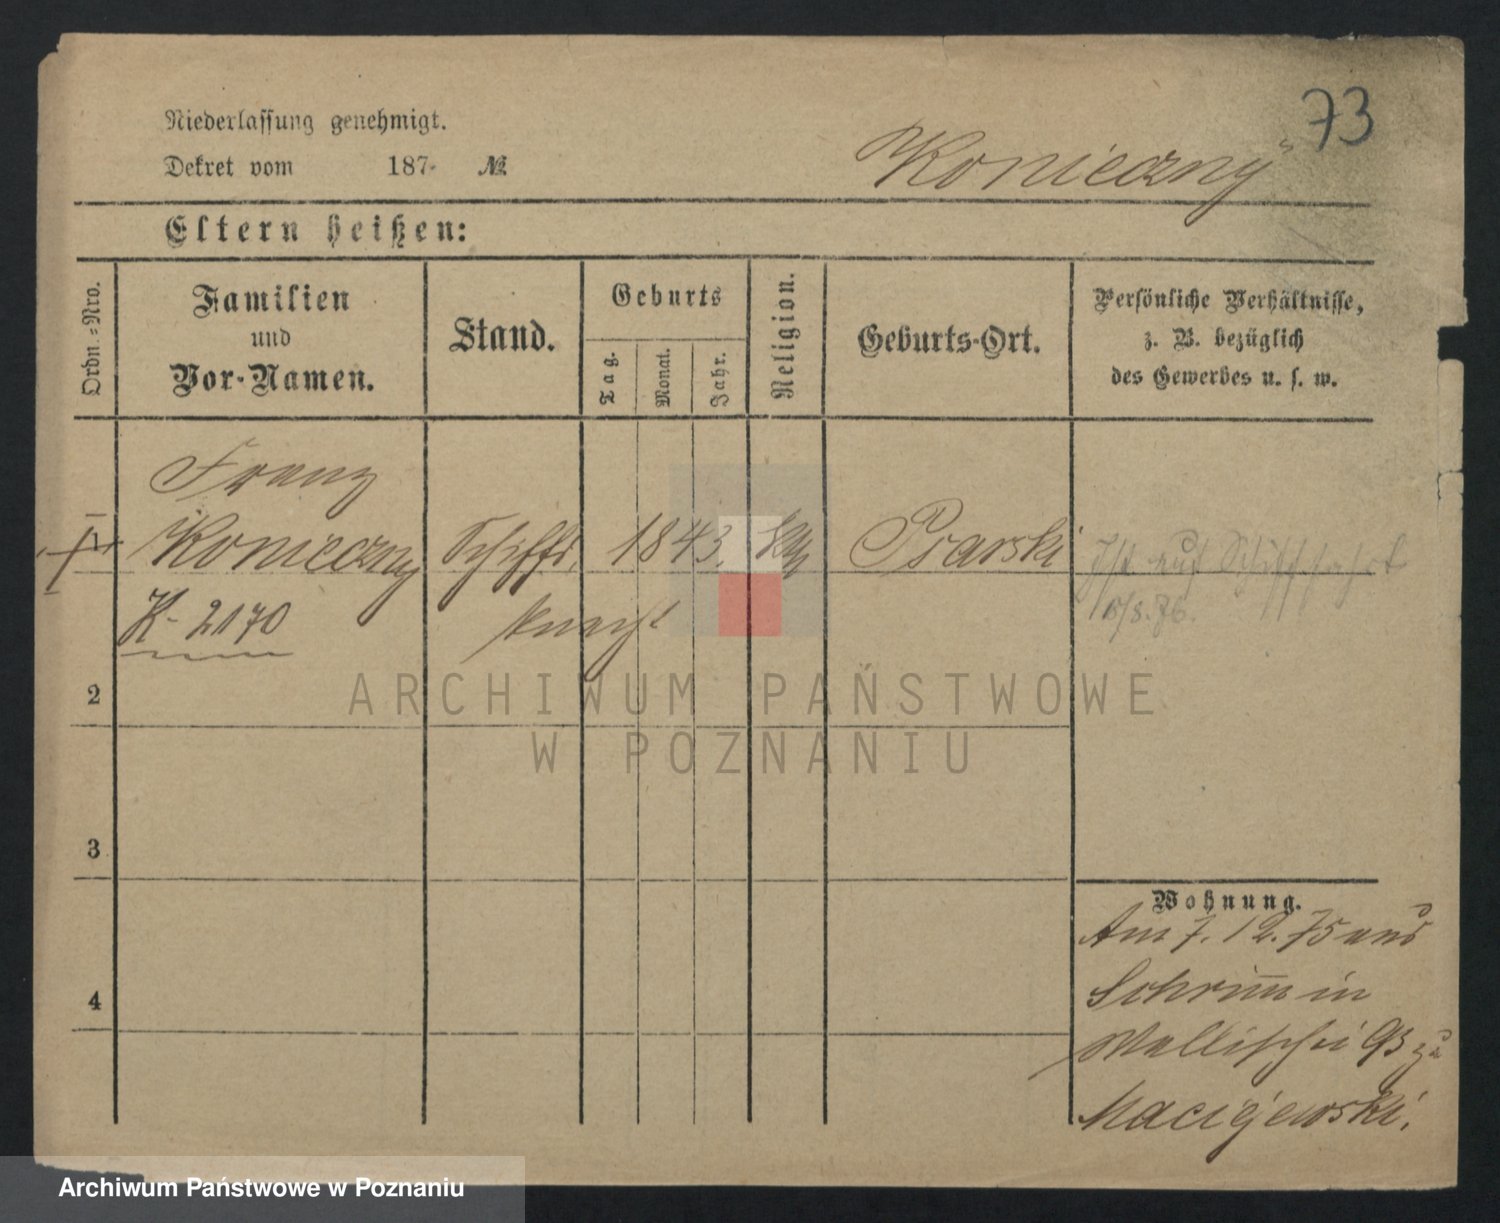 73
Niederlassung genehmigt.
Dekret vom 187- №
Konieczny
Eltern heißen:
Ordn.-Nro.
Familien und Vor-Namen.
Stand.
Geburts
Tag.
Monat.
Jahr.
Religion.
Geburts-Ort.
Persönliche Verhältnisse,
z. B. bezüglich
des Gewerbes u. s. w.
Franz
1 Konieczny Schiffs 1843. kth Psarski Ist auf Schifffahrt
K- 2170 knecht /8.76.
2
3
4
Wohnung.
Am 7. 12. 75 aus
Schrimm in
Wallischei 93 zu
Maciejewski.
ARCHIWUM PAŃSTWOWE
W POZNANIU
Archiwum Państwowe w Poznaniu